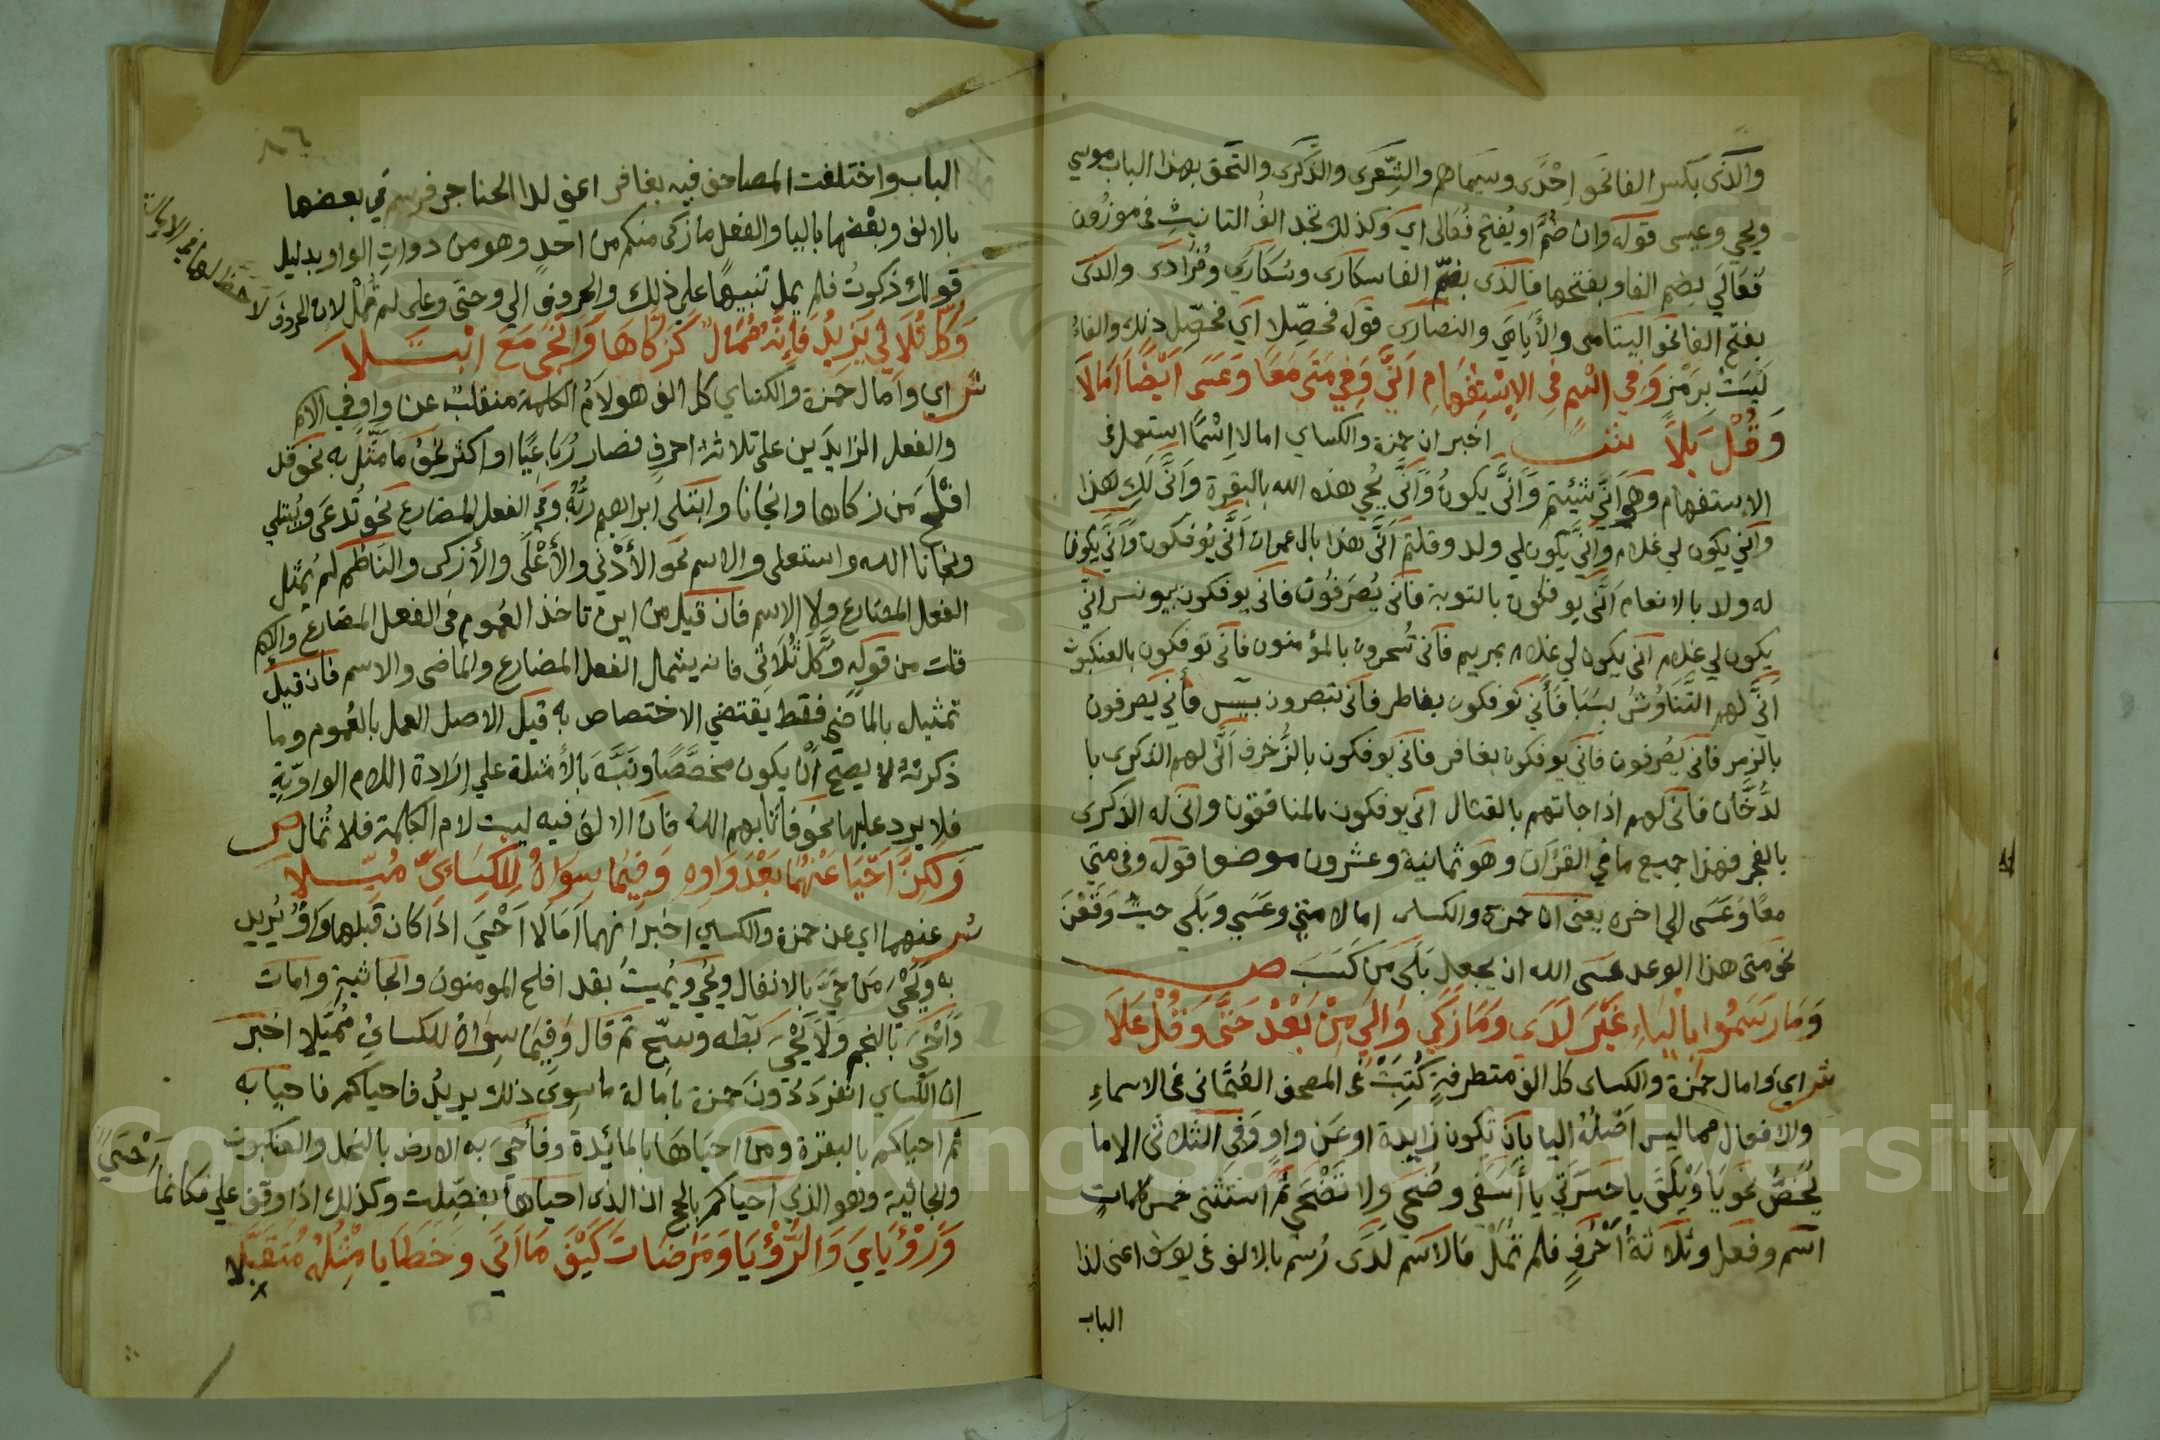 والذى بكسر الفا نحو احْدَى وسيماهم والشِّعرَى والذِّكرَى والتحق بهذا الباب موسي
ويحي وعيسى قوله وان ضُمَّ او يُفتح فُعَالى اي وكذلك تجد الفُ التانيثِ فى موزُون
فعَالَي بضم الفا وبفتحها فالذى بضمّ الفا سكارى وسُكَارَى وفُرَادَى والذى
بفتح الفا نحو اليتامى والأَيَامَي والنصارى قوله فحصِّلا اي فحصِّل ذلك والفاءُ
لَيسَتْ برَمْزٍ وَفِي اسْمٍ فِى الإِسْتِفْهَامِ اَنَّى وَفِي مَتَى مَعًا وَعَسَى اَيْضًا اَمَالَا
وَقُلْ بَلَا ش اخبر ان حمزة والكساي امالا اِسْمًا استعمل فى
الاستفهام وهو اَنَّي شئتم وَاَنَّي يكونُ وَاَنَّى يُحيِ هذه الله بالبقرة وَاَنَّى لكِ هذا
وانى يكون لي غلام وانَّي يكون لي ولد وقلتم اَنَّى هذا بال عمران اَنَّى يُوفكون وَاَنَّى يكون
له ولد بالانعام اَنَّى يوفكون بالتوبة فانى يُصرَفُون فانى يوفكون بيونس انَّي
يكون لي غلام انى يكون لي غلام بمريم فانى تُسحرون بالمؤمنون فانى توفكون بالعنكبوت
اَنَّى لهم التَّنَاوُشُ بسَبَا فَاَنَّي توفكون بفاطر فانى تبصرون بيس فأني يصرفون
بالزمر فانى يُصرفون فاَنى يوفكون بغافر فانى يوفكون بالزُّخرف اَنَّى لهم الذكرى با
لدُّخَان فانى لهم اذا جاتهم بالقتال انى يوفكون بالمنافقون وانى له الذكرى
بالفجر فهذا جميع ما في القرآن وهو ثمانية وعشرون موضوا قوله وفى متي
معًا وعَسَى الي اخره يعنى ان حمزة والكساى امالا متي وعسي وبَلَى حيثُ وقَعْنَ
نحو متى هذا الوعد عسى الله ان يجعل بَلَى مَن كَسَبَ ص
وَمَا رَسَمُوا بِالْيَاءِ غَيْرَ لَدَى وَمَا زَكَى وَالَى مِنْ بَعْدُ حَتَّى وَقُلْ عَلَا
ش اي وامال حمزة والكساى كل الف متطرفةٍ كُتِبَتْ فى المصحف العُثْمَانى فى الاسماءِ
والافعال مما ليس اَصْلُهُ اليا بان تكون زايدة او عَن واوٍ وَفى الثلاثى الاما
يُخَصُّ نحو يَا وَيْلَتَى يا حَسْرَتَي يا أَسَفَي وضُحَي ولا تضْحَي ثم استَثْنى خمس كلماتٍ
اسم وفعل وثلاثةُ اَحْرُفٍ فلم تُمَلْ فالاسم لَدَى رُسم بالالف فى يوسف اعنى لدا
الباب
الباب واختلفت المصاحف فيه بغافر اعني لدا الحناجر فرسم في بعضها
بالالف وبعْضها باليا والفعل ما زكى منكم من احدٍ وهو من دواتِ الواو بدليل
قولك زكوتُ فلم يمل تنبيهًا علي ذلك والحروف الي وحتى وعلى لم تُمَلْ لان الحروف
لا حظ لها في الامالة
وَكُلُّ ثُلَاثِي يَزِيدُ فَإِنَّهُ مُمَالٌ كَزَكَّاهَا وَانْجَى مَعَ ابْتَلَا
ش اي وامال حمزة والكساي كل الف هو لامُ الكلمة منقلبٍ عن واو في الاسم
والفعل الزايدَين على ثلاثة احرف فصار رُبَاعيًّا او اكثر نحوُ ما مَثَّلَ به نحو قد
افْلَحَ مَن زكاها وانجانا وابتَلَى ابراهيم ربُّهُ وفى الفعل المضارع نحو تُدعَى ويُبْتَلَي
ونجانا الله واستعلى والاسم نحو الأَدْنى والأَعْلَى والأزكى والناظم لم يُمثل
الفعل المضارع ولا الاسم فان قيل من اين تاخذ العُموم فى الفعل المضارع والاسم
قلت من قوله وكل ثُلَاثِي فانه يشمل الفعل المضارع والماضى والاسم فان قيل
تمثيله بالماضي فقط يقتضي الاختصاص به قيل الاصل العمل بالعُموم وما
ذكرتهُ لا يصح اَنْ يكون مخصَّصًا ونَبَّهَ بالأمثلة علي اِرَادة اللام الواوِيّةِ
فلا يرد عليها نحو فاثابهم اللهُ فان الالف فيه ليست لام الكلمة فلا تُمال ص
وَلكِنَّ اَحْيَا عَنْهُمَا بَعْدَ وَاوِهِ وَفِيمَا سِوَاهُ لِلْكِسَائِيِّ مُيِّلَا
ش عنهما اي عن حمزة والكساي اخبر انهما اَمَالَا اَحْيَى اذا كان قبلها وَاوٌ يُريد
به وَيَحْيَى مَن حَيَّ بالانفال ويُحي ويُميتُ بقد افلح المومنون والجاثيةِ وامات
وَاَحْيَى بالنجم وَلَا يَحْيَى بطه وسبّح ثم قال وَفيما سِوَاهُ للكساىِّ مُيِّلا اخبر
ان الكساي انفَرَدَ دُونَ حَمزة بامالة ما سِوَى ذلك يريدُ فاحياكم فاحيا به
ثم احياكم بالبقرة ومن احيَاهَا بالمائِدة وفأحيَى به الارض بالنحل والعنكبوت
والجاثية وهو الذي احياكم بالحج ان الذى احياها بفصّلت وكذلك اذا وقف علي فكانما
اَحْيَى
وَرُؤْيَايَ وَالرُّؤْيَا وَمَرْضَاتَ كَيْفَ مَا اَتَى وَخَطَايَا مِثْلُهُ مُتَقَبَّلَا